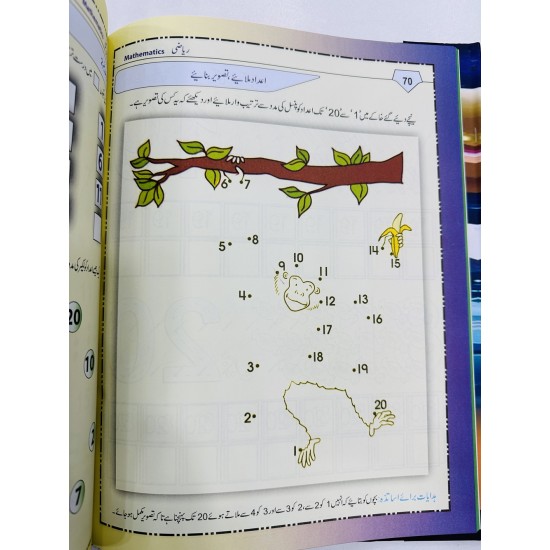 Mathematics ریاضی
70
اعداد ملائیے، تصویر بنائیے
نیچے دیئے گئے خاکے میں '1' سے '20' تک اعداد کو پنسل کی مدد سے ترتیب وار ملائیے اور دیکھئے کہ یہ کس کی تصویر ہے۔
6 7
5 8
9 10 11
14 15
4 12 13
16
17
3 18 19
2 20
1
ہدایات برائے اساتذہ: بچوں کو بتائیے کہ انہیں 1 کو 2 سے، 2 کو 3 سے اور 3 کو 4 سے ملاتے ہوئے 20 تک پہنچنا ہے تاکہ تصویر مکمل ہو جائے۔
20
10
7